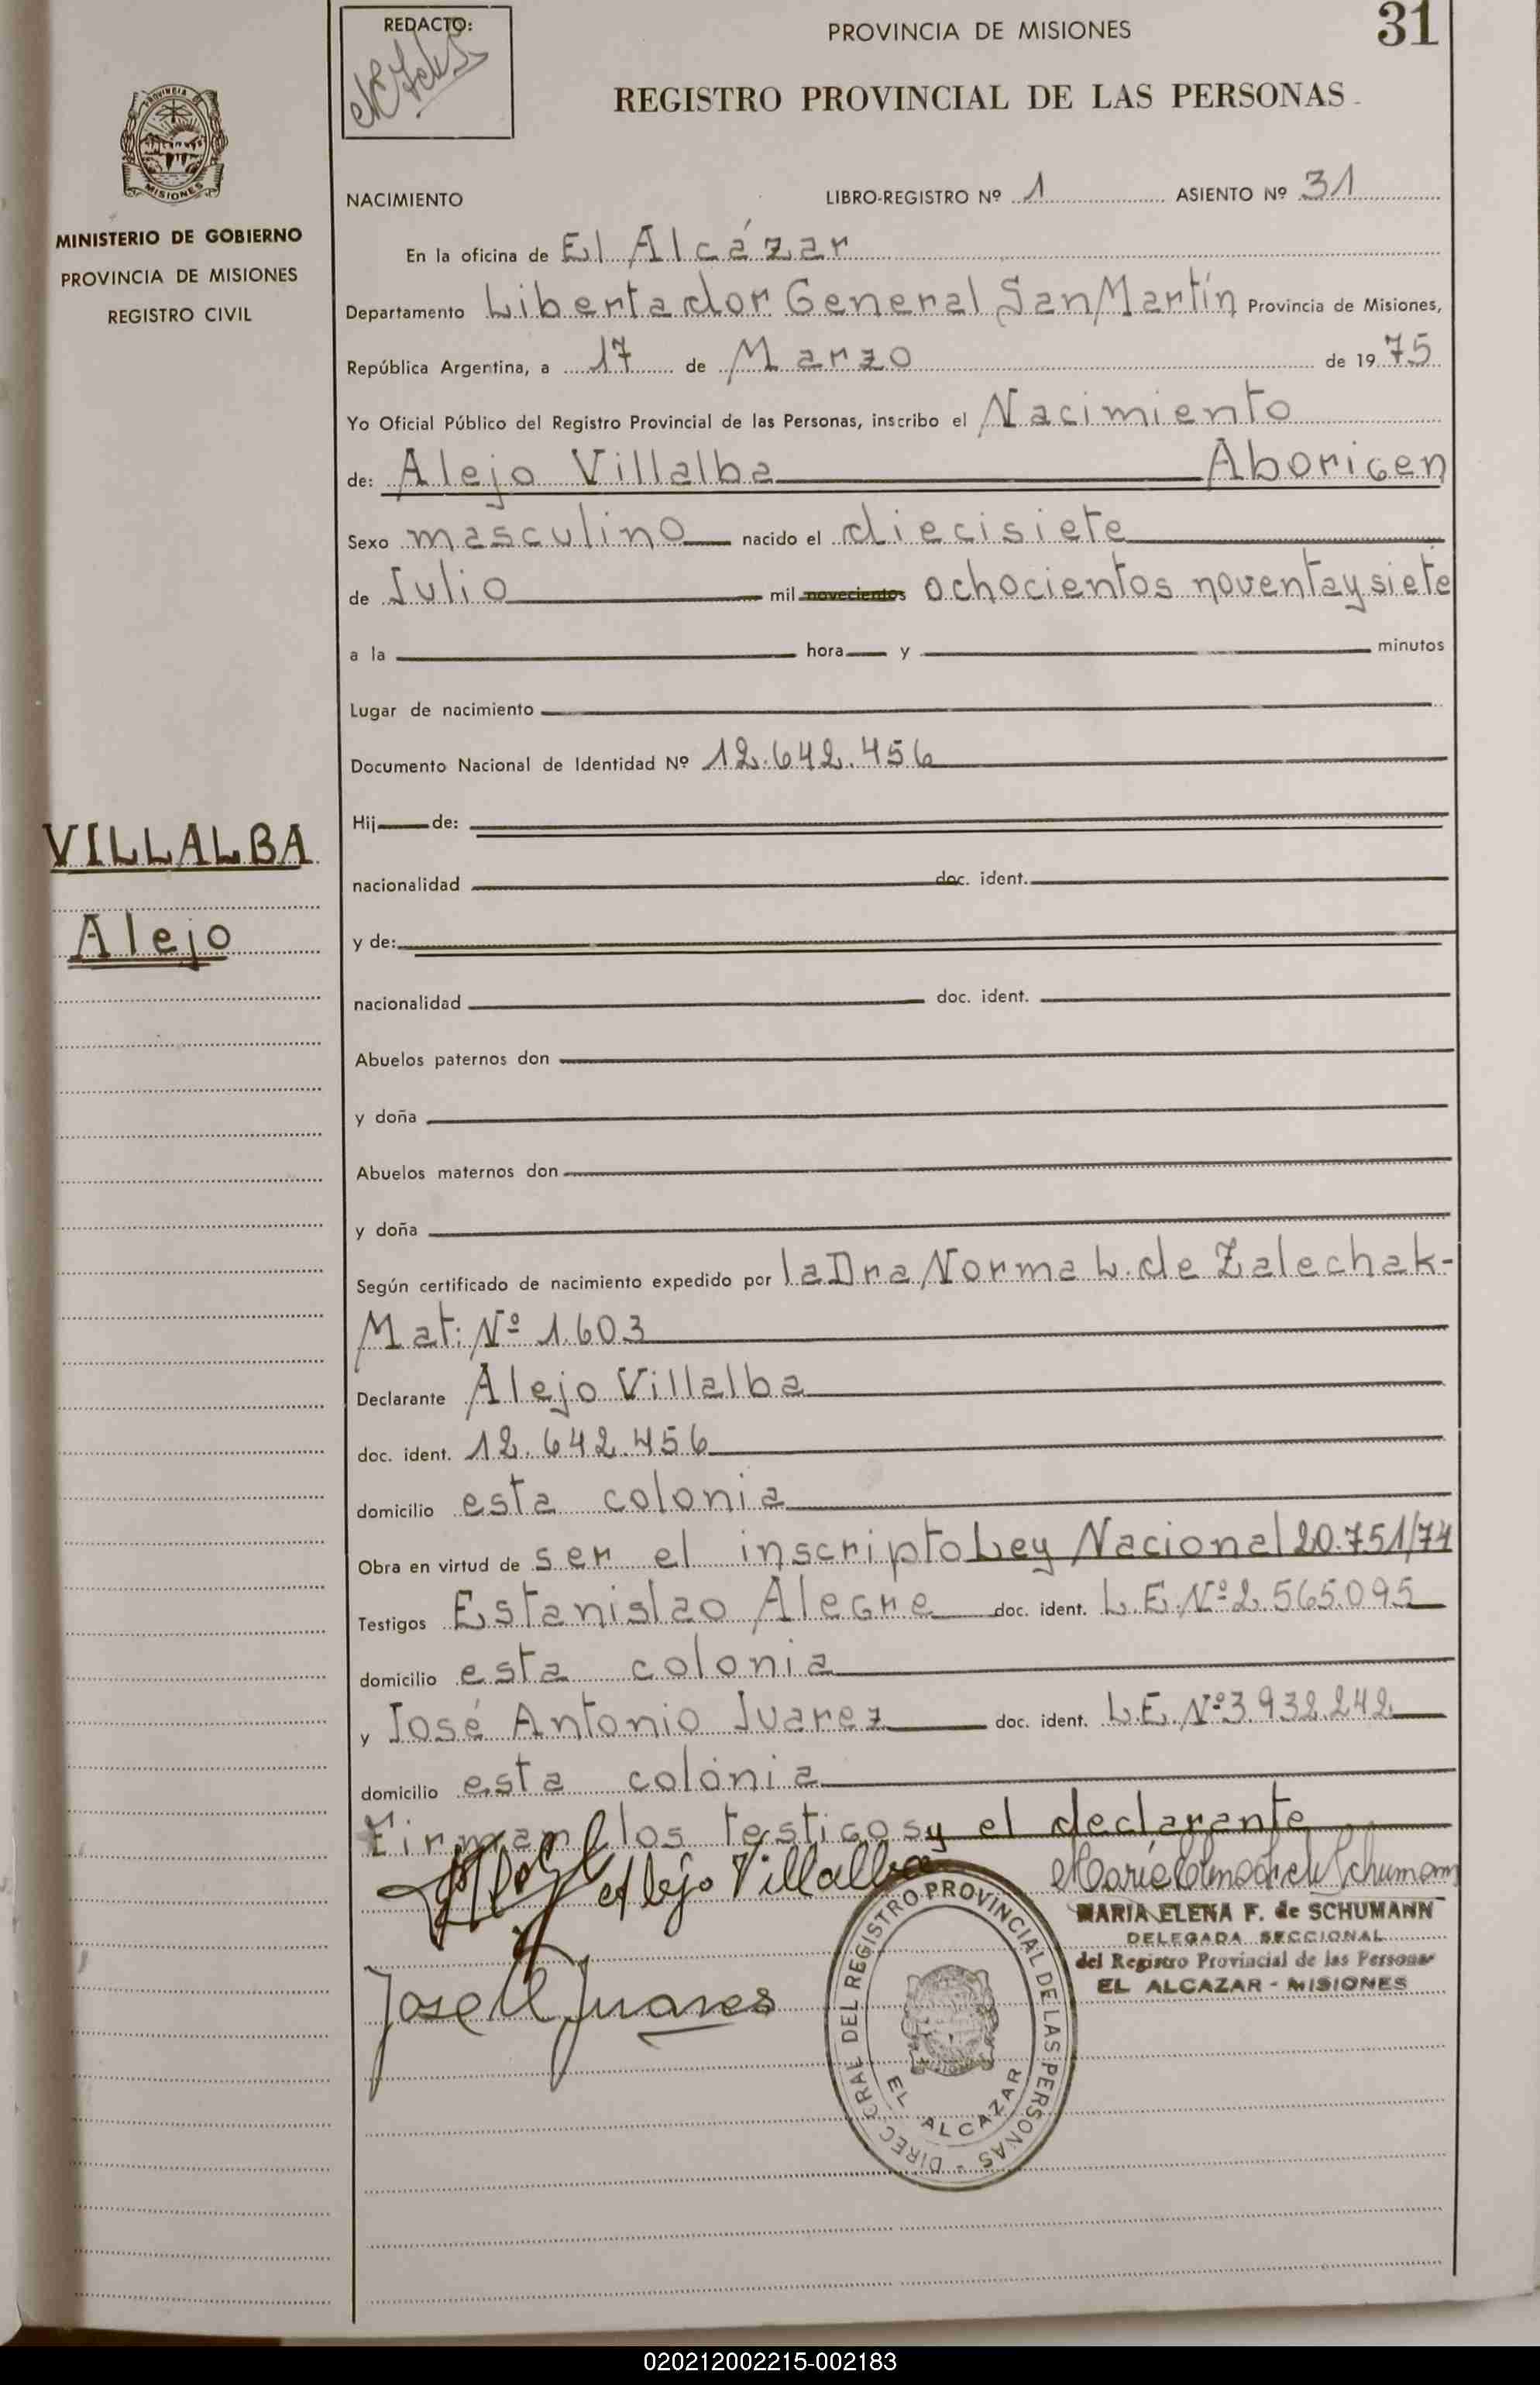 REDACTO:
PROVINCIA DE MISIONES
31
REGISTRO PROVINCIAL DE LAS PERSONAS
PROVINCIA DE
MISIONES
MINISTERIO DE GOBIERNO
PROVINCIA DE MISIONES
REGISTRO CIVIL
NACIMIENTO LIBRO-REGISTRO Nº 1 ASIENTO Nº 31
En la oficina de El Alcázar
Departamento Libertador General San Martín Provincia de Misiones,
República Argentina, a 17 de Marzo de 1975
Yo Oficial Público del Registro Provincial de las Personas, inscribo el Nacimiento
de: Alejo Villalba Aborigen
Sexo masculino nacido el diecisiete
de Julio mil novecientos ochocientos noventa y siete
a la hora y minutos
Lugar de nacimiento
Documento Nacional de Identidad Nº 12.642.456
VILLALBA
Alejo
Hij de:
nacionalidad doc. ident.
y de:
nacionalidad doc. ident.
Abuelos paternos don
y doña
Abuelos maternos don
y doña
Según certificado de nacimiento expedido por la Dra Norma L. de Zalechak-
Mat: Nº 1.603
Declarante Alejo Villalba
doc. ident. 12.642.456
domicilio esta colonia
Obra en virtud de ser el inscripto Ley Nacional 20.751/74
Testigos Estanislao Alegre doc. ident. L.E. Nº 2.565.095
domicilio esta colonia
y José Antonio Juarez doc. ident. L.E. Nº 3.932.242
domicilio esta colonia
Firman los testigos y el declarante
Alejo Villalba
MARIA ELENA F. de SCHUMANN
DELEGADA SECCIONAL
del Registro Provincial de las Personas
EL ALCAZAR - MISIONES
Jose A Juares
DIREC. GRAL DEL REGISTRO PROVINCIAL DE LAS PERSONAS -
EL ALCAZAR
020212002215-002183